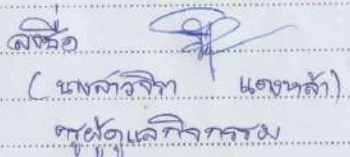 ลงชื่อ
(นางสาวจิรา แดงหล้า)
ครูผู้ดูแลกิจกรรม